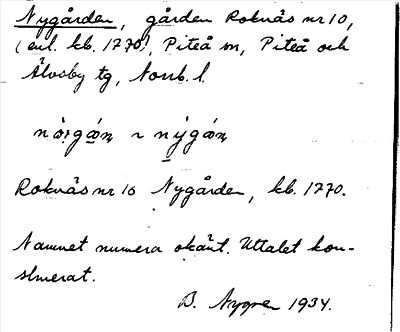 Nygården, gården Roknäs nr 10,
(enl. kb. 1770), Piteå sn, Piteå och
Älvsby tg, Norrb. l.
Roknäs nr 10 Nygården, kb. 1770.
Namnet numera okänt. Uttalet kon-
struerat.
B. Nygren 1934.